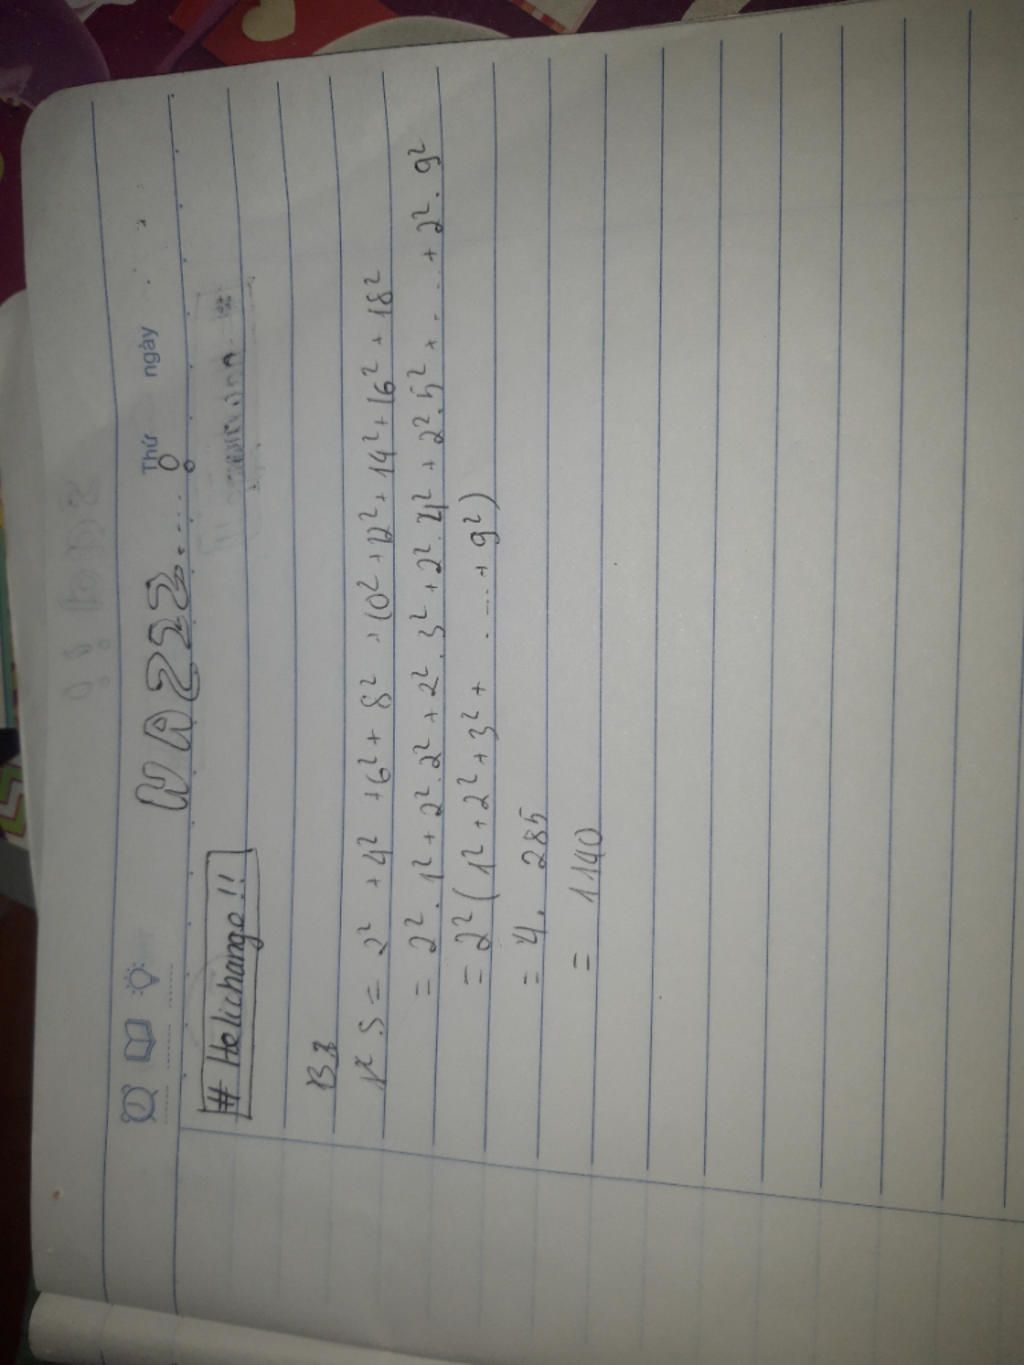 Thứ ngày
# Helichange!!
B3
S = 2² + 4² + 6² + 8² + 10² + 12² + 14² + 16² + 18²
= 2². 1² + 2². 2² + 2². 3² + 2². 4² + 2². 5² + ... + 2². 9²
= 2² ( 1² + 2² + 3² + .... + 9²)
= 4. 285
= 1140